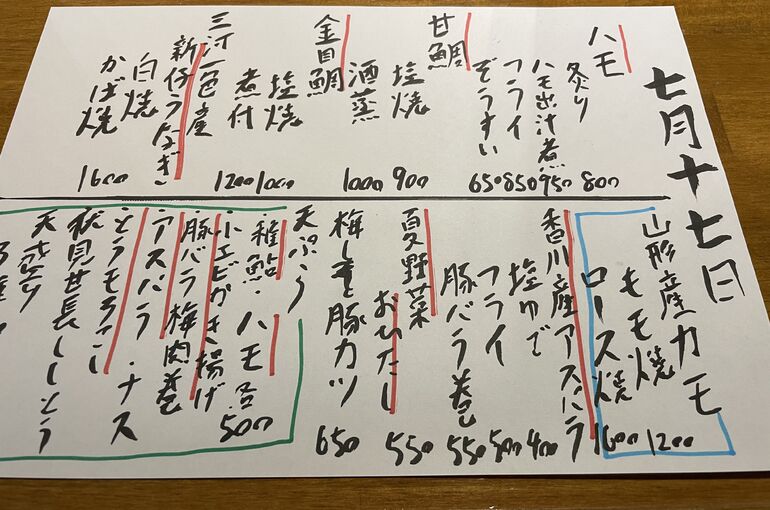 七月十七日
ハモ
炙り 800
ハモ出汁煮 950
フライ 850
ぞうすい 650
甘鯛
塩焼 900
酒蒸 1000
金目鯛
塩焼 1000
煮付 1200
三河一色産
新仔うなぎ
白焼
かば焼 1600
山形産カモ
モモ焼 1200
ロース焼 1600
香川産アスパラ
塩ゆで 400
フライ 500
豚バラ巻 550
夏野菜
おひたし 550
梅しそ豚カツ 650
天ぷら
・稚鮎・ハモ各500
・小エビかき揚げ
・豚バラ梅肉巻
・アスパラ・ナス
・とうもろこし
伏見甘長ししとう
天盛り